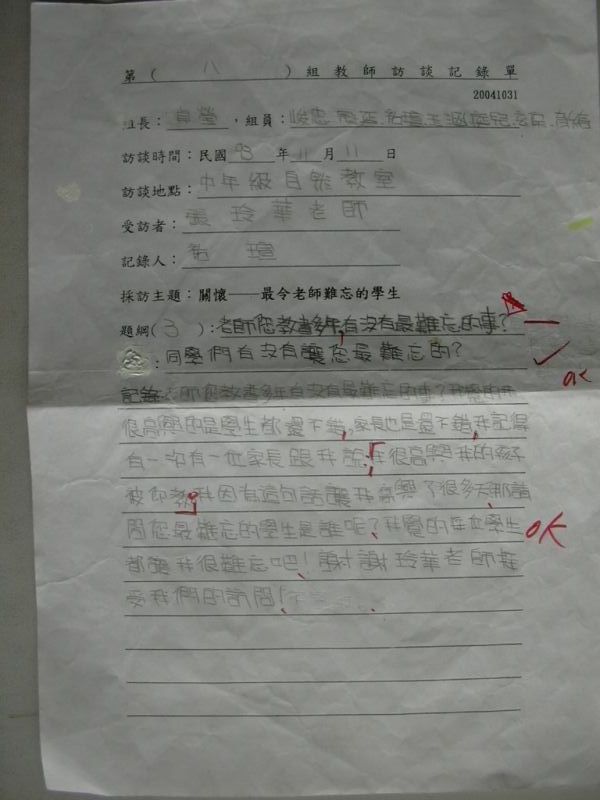 第（ 八 ）組教師訪談記錄單
20041031
組長：貞瑩，組員：
訪談時間：民國 93 年 11 月 11 日
訪談地點：中年級自然教室
受訪者：張玲華老師
記錄人：瑄
採訪主題：關懷——最令老師難忘的學生
題綱（3）：老師您教書多年，有沒有最難忘的事？
：同學們有沒有讓您最難忘的？
ok
記錄：老師您教書多年有沒有最難忘的事？我覺的
很高興的是學生都還不錯，家長也是還不錯，我記得
有一次有一位家長跟我說：「我很高興我的孩子
被你教」我因有這句話讓我高興了很多天、那請
問您最難忘的學生是誰呢？我覺的每位學生
OK
都讓我很難忘吧！謝謝玲華老師接
受我們的訪問！